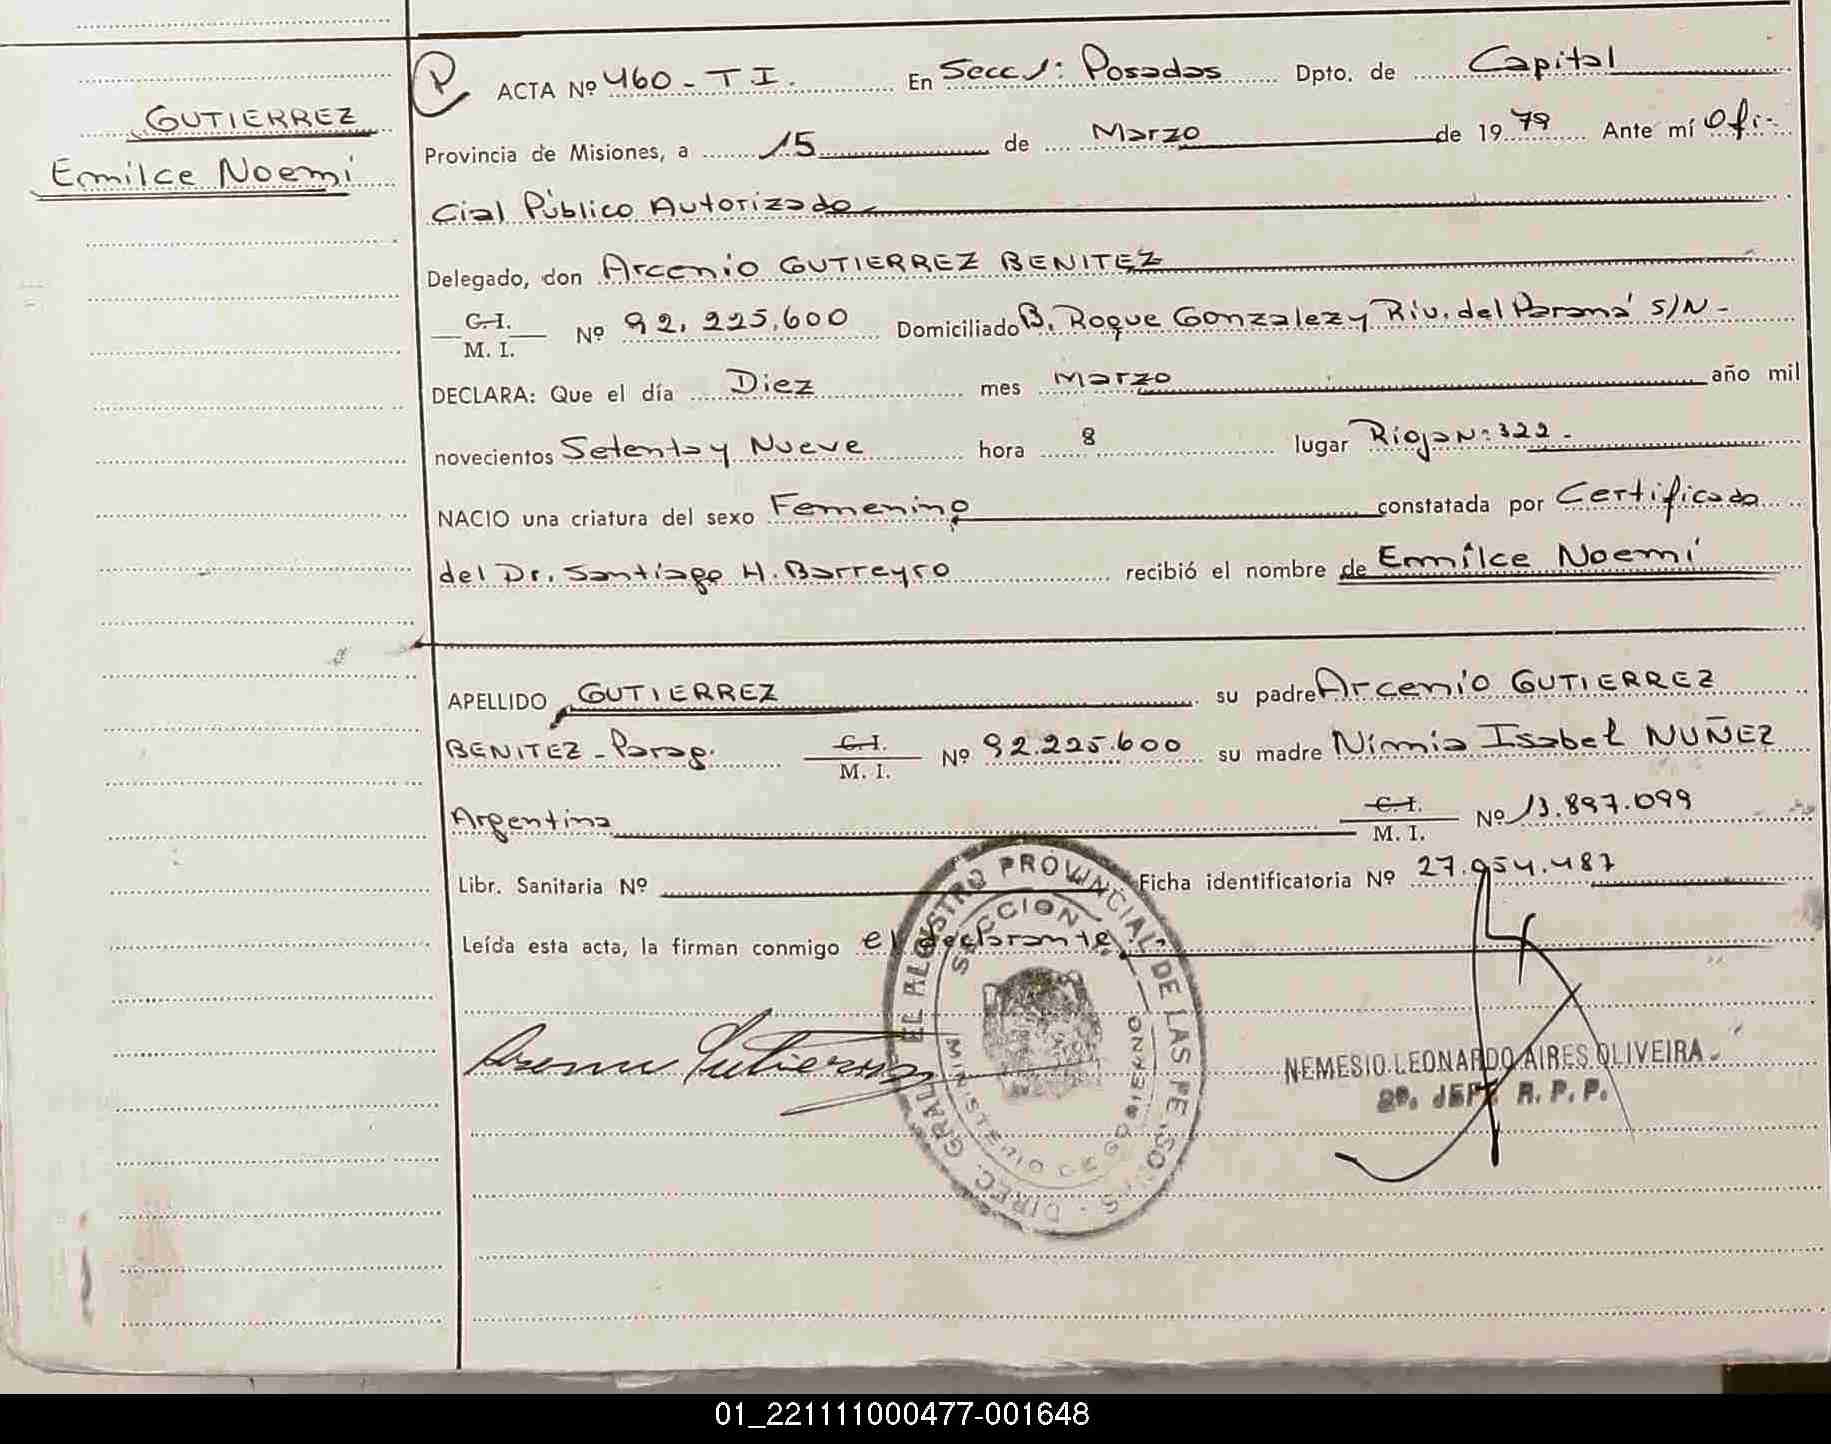 GUTIERREZ
Emilce Noemi
ACTA Nº 460 - T I. En Secc 1: Posadas Dpto. de Capital
Provincia de Misiones, a 15 de Marzo de 1979 Ante mí Ofi-
cial Público Autorizado
Delegado, don Arcenio GUTIERREZ BENITEZ
C.I.
M. I. Nº 92.225.600 Domiciliado B. Roque Gonzalez y Riv. del Paraná S/N -
DECLARA: Que el día Diez mes Marzo año mil
novecientos Setenta y Nueve hora 8 lugar Rioja Nº 322 -
NACIO una criatura del sexo Femenino constatada por Certificado
del Dr. Santiago H. Barreyro recibió el nombre de Emilce Noemi
APELLIDO GUTIERREZ su padre Arcenio GUTIERREZ
BENITEZ - Parag. C.I.
M. I. Nº 92.225.600 su madre Nimia Isabel NUÑEZ
Argentina C.I.
M. I. Nº 13.897.099
Libr. Sanitaria Nº Ficha identificatoria Nº 27.954.487
Leída esta acta, la firman conmigo el declarante.-
Gutierrez
NEMESIO LEONARDO AIRES OLIVEIRA
2º. JEFE R. P. P.
DIREC. GRAL. DEL REGISTRO PROVINCIAL DE LAS PERSONAS
SECCION 1º
MINISTERIO DE GOBIERNO
01_221111000477-001648